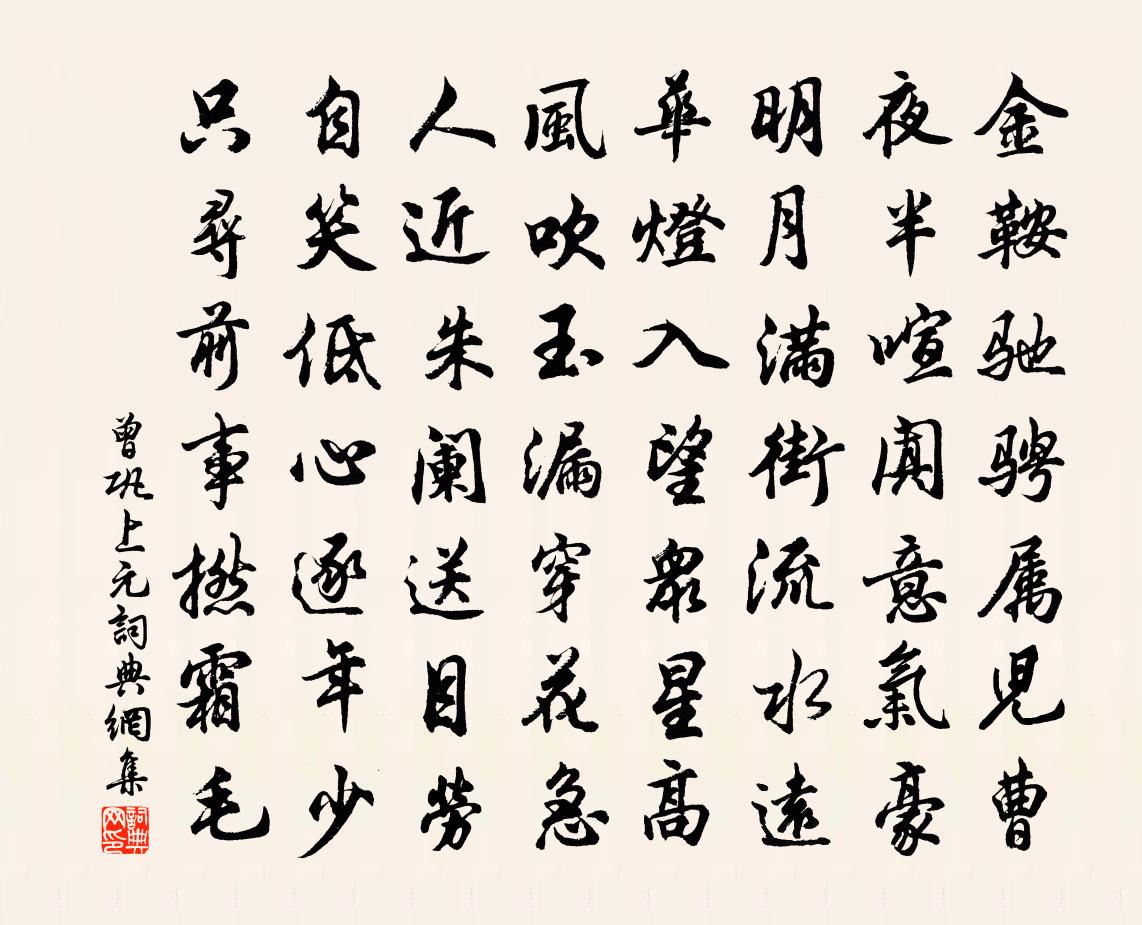 金鞍驰骋属児曹
夜半喧阗意氣豪
明月满街流水遠
華燈入望衆星高
風吹玉漏穿花急
人近朱阑送目勞
自笑低心逐年少
只尋前事撚霜毛
曾巩上元詞典網集
詞典網印